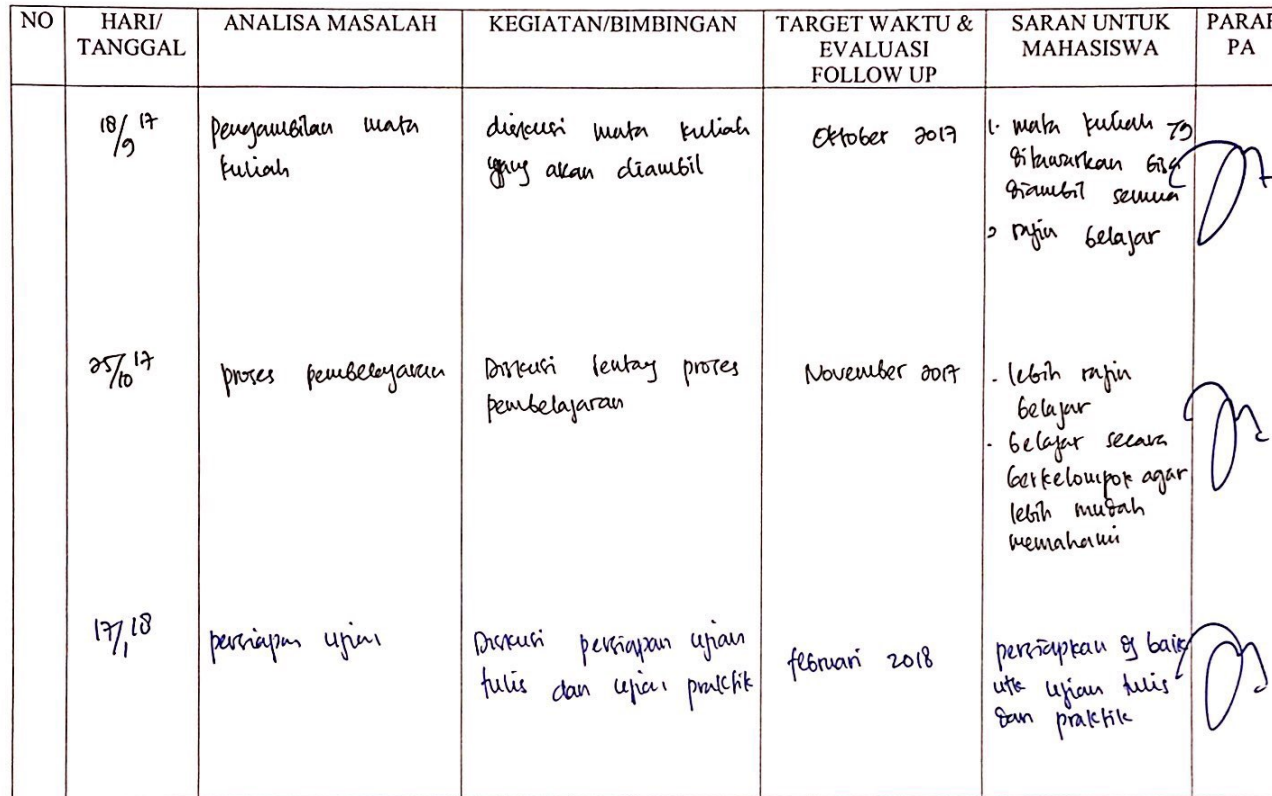 NO
HARI/
TANGGAL
ANALISA MASALAH
KEGIATAN/BIMBINGAN
TARGET WAKTU &
EVALUASI
FOLLOW UP
SARAN UNTUK
MAHASISWA
PARAF
PA
18/9 17
Pengambilan mata
kuliah
diskusi mata kuliah
yang akan diambil
Oktober 2017
1. mata kuliah yg
ditawarkan bisa
diambil semua
2 rajin belajar
25/10 17
proses pembelajaran
Diskusi tentang proses
pembelajaran
November 2017
- lebih rajin
belajar
- belajar secara
berkelompok agar
lebih mudah
memahami
17/1 18
persiapan ujian
Diskusi persiapan ujian
tulis dan ujian praktik
februari 2018
persiapkan dg baik
utk ujian tulis
dan praktik